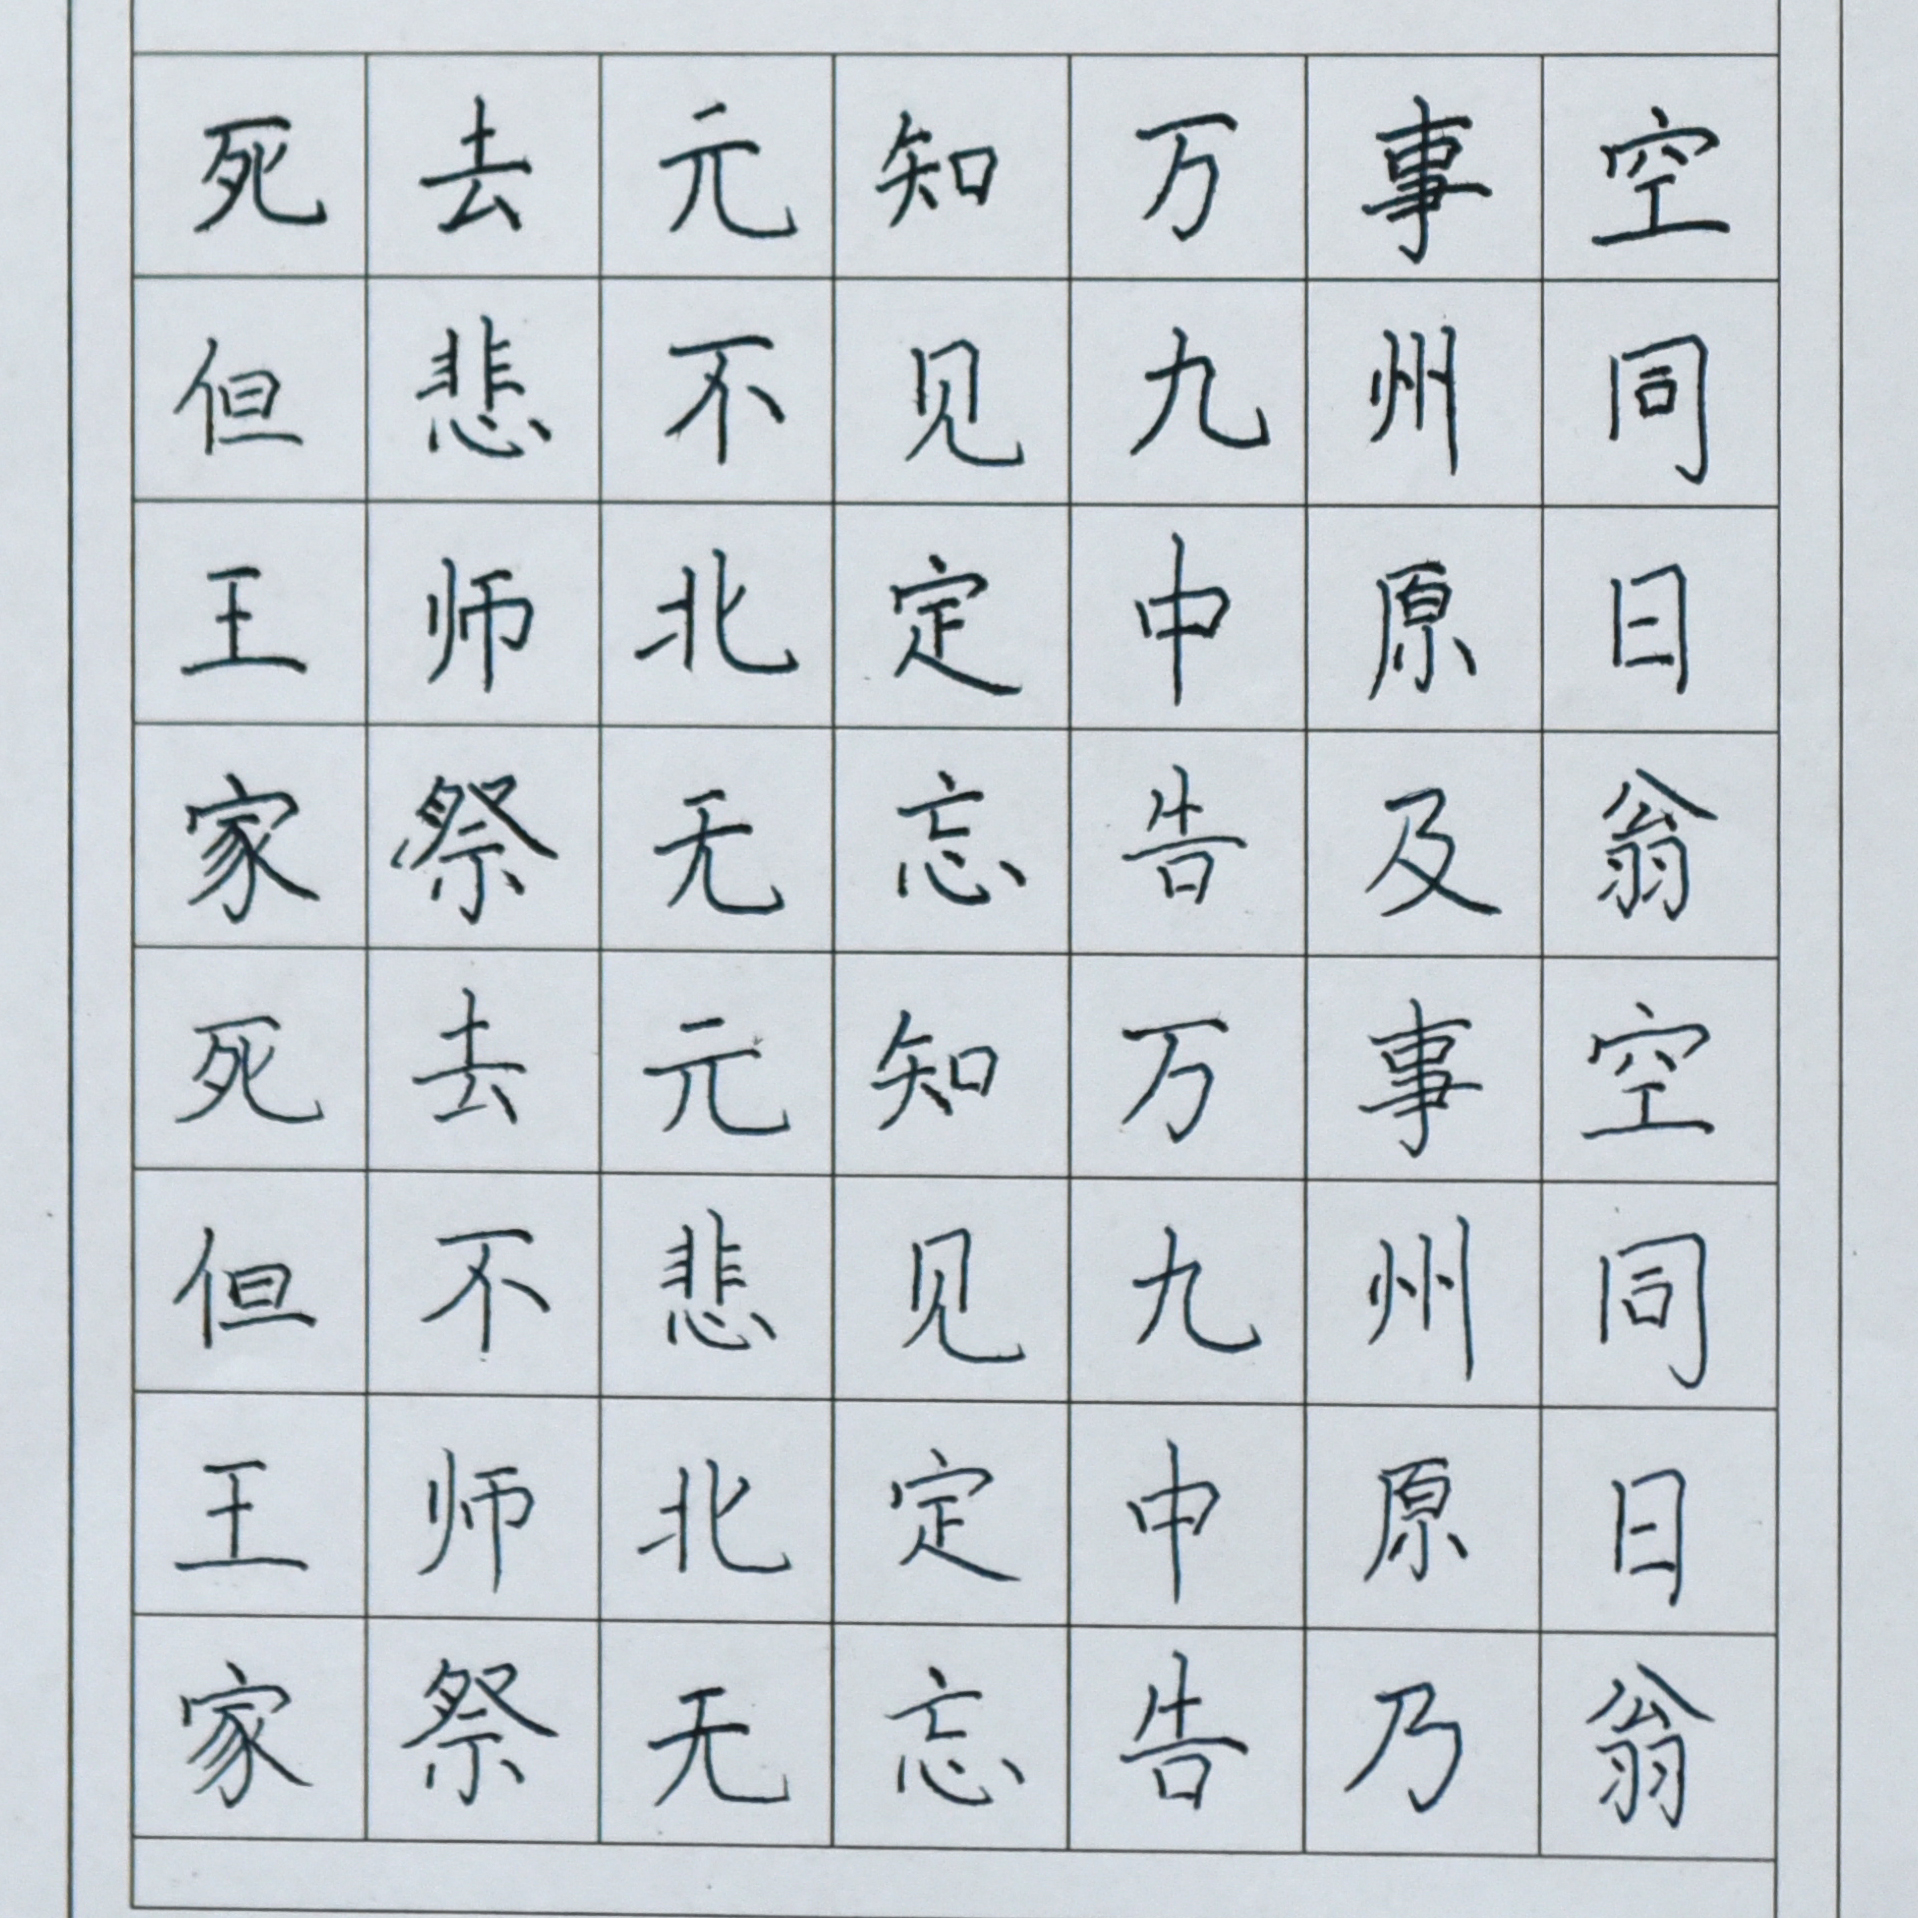 死去元知万事空
但悲不见九州同
王师北定中原日
家祭无忘告及翁
死去元知万事空
但不悲见九州同
王师北定中原日
家祭无忘告乃翁